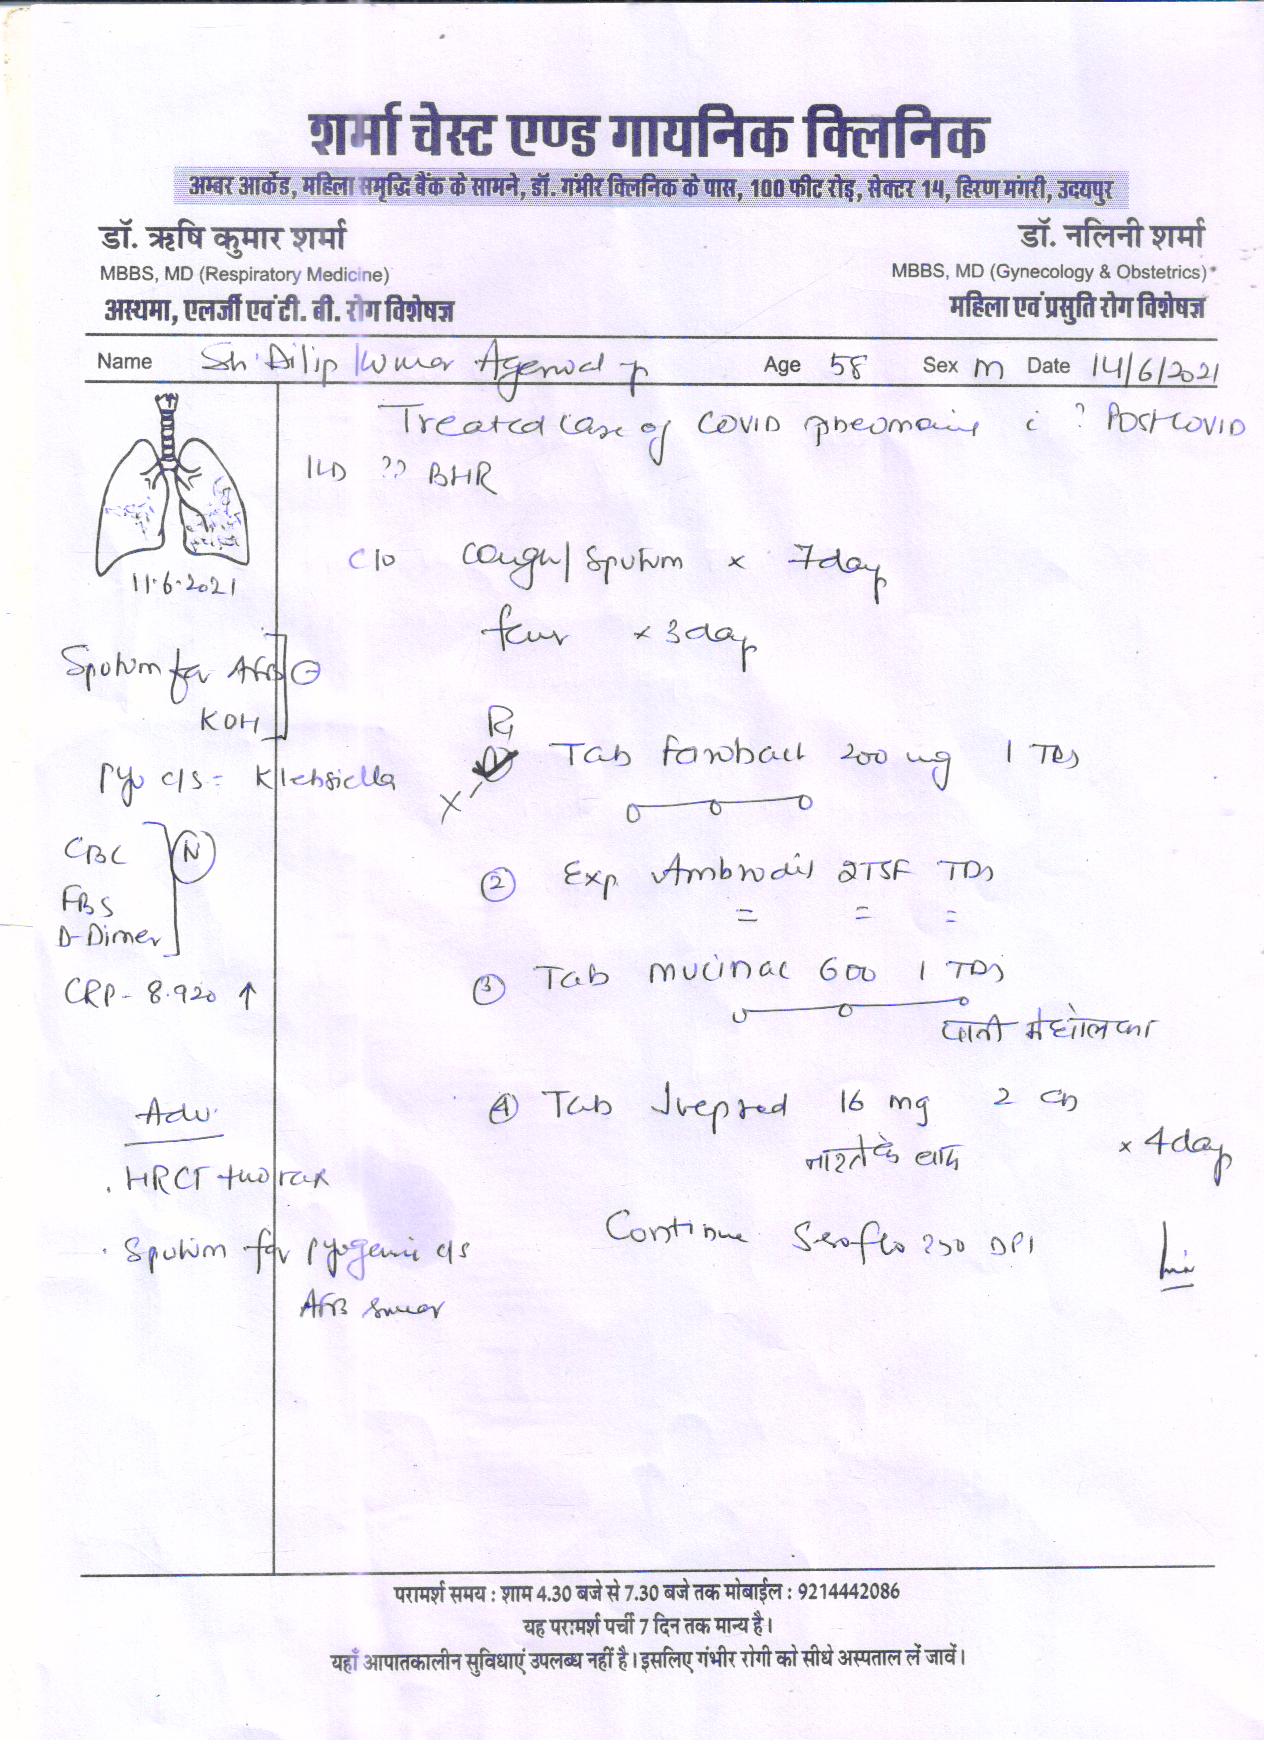 शर्मा चेस्ट एण्ड गायनिक क्लिनिक
अम्बर आर्केड, महिला समृद्धि बैंक के सामने, डॉ. गंभीर क्लिनिक के पास, 100 फीट रोड़, सेक्टर 14, हिरण मंगरी, उदयपुर
डॉ. ऋषि कुमार शर्मा
MBBS, MD (Respiratory Medicine)
अस्थमा, एलर्जी एवं टी. बी. रोग विशेषज्ञ
डॉ. नलिनी शर्मा
MBBS, MD (Gynecology & Obstetrics)
महिला एवं प्रसुति रोग विशेषज्ञ
Name Sh. Dilip Kumar Age 58 Sex M Date 14/6/2021
Treated case of COVID c̄ ? Post COVID
ILD ?? BHR
11.6.2021
C/o Cough/Sputum x 7day
fever x 3day
Sputum for AFB ⊖
KOH
Pyo c/s = Klebsiella
CBC (N)
FBS
D-Dimer
CRP - 8.920 ↑
Rx
X Tab 200 mg 1 TDS
② Exp. Ambrodil 2TSF TDS
③ Tab Mucinac 600 1 TDS
पानी में घोलकर
④ Tab Ivepred 16 mg 2 OD
नाश्ते के बाद x 4day
Continue Seroflo 250 DPI
Adv.
. HRCT thorax
. Sputum for pyogenic c/s
AFB smear
परामर्श समय : शाम 4.30 बजे से 7.30 बजे तक मोबाईल : 9214442086
यह परामर्श पर्ची 7 दिन तक मान्य है।
यहाँ आपातकालीन सुविधाएं उपलब्ध नहीं है। इसलिए गंभीर रोगी को सीधे अस्पताल लें जावें।